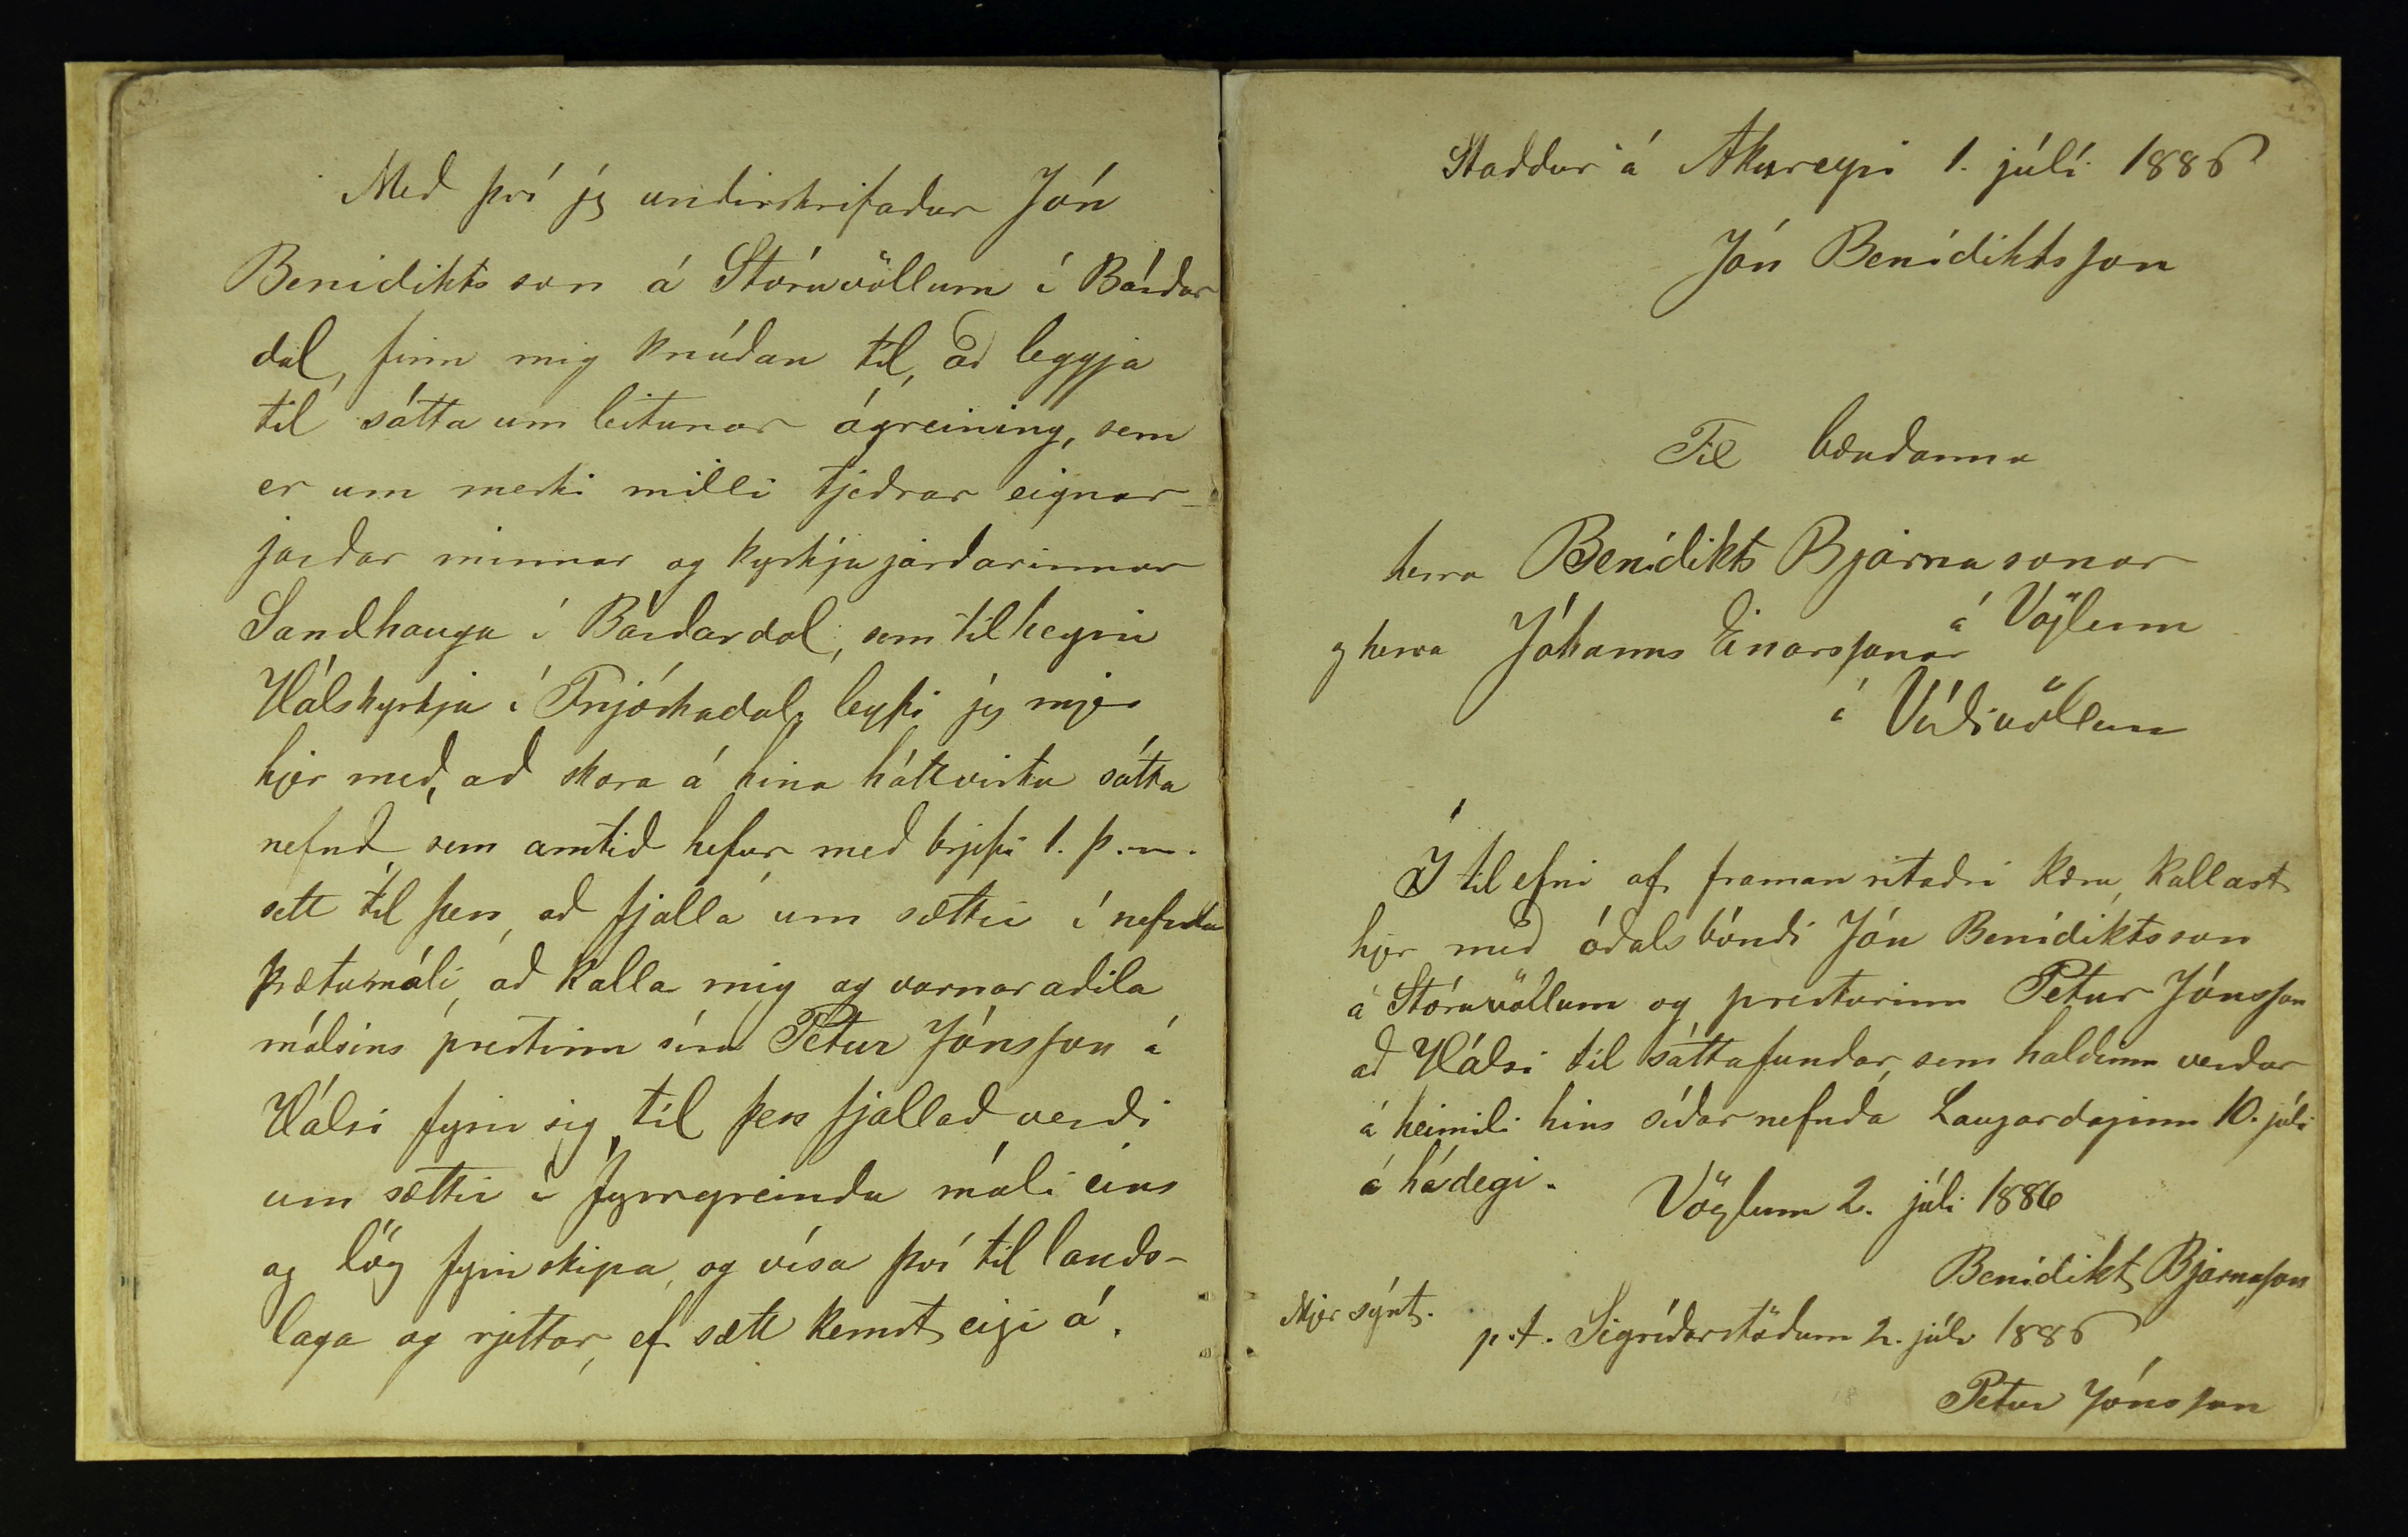 Með því jeg undirskrifaður Jón
Benidikts son á Stóruvöllum í Bárðar
dal, finn mig knúðan til, að leggja
til sátta um leitunar ágreining, sem
er um merki milli tjeðrar eignar-
jarðar minnar og kyrkjujarðarinnar
Sandhauga í Bárðardal, sem tilheyrir
Hálskyrkju í Fnjóskadal, leyfi jeg mjer
hjer með, að skora á hina háttvirtu sátta
nefnd, sem amtið hefur með brjefi 1. þ.m.
sett til þess, að fjalla um sættir í nefndu
þrætumáli, að kalla mig og varnar aðila
málsins prestinn síra Petur Jónsson á
Hálsi fyrir sig, til þess fjallað verði
um sættir í fyrrgreindu máli eins
og lög fyrir skipa, og vísa því til lands-
laga og rjettar, ef sætt kemst eigi á.
Staddur á Akureyri 1. júlí 1886
Jón Benidiktsson
Til bændanna
herra Benidikts Bjarna sonar
á Vöglum
og herra Jóhanns Einarssonar
á Víðivöllum
Í tilefni af framan ritaðri kæru, kallast
hjer með óðals bóndi Jón Benidiktsson
á Stóruvöllum og presturinn Petur Jónsson
að Hálsi til sáttafundar, sem haldinn verður
á heimili hins síðarnefnda Laugardaginn 10. júlí
á hádegi.
Vöglum 2. júlí 1886
Benidikt Bjarnason
Mjer sýnt.
p.t. Sigríðarstöðum 2. júlí 1886
Petur Jónsson